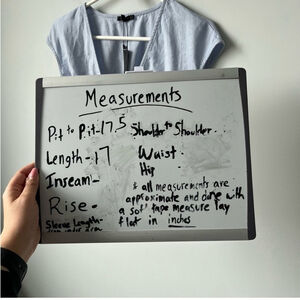 Measurements
Pit to Pit-17.5 Shoulder to Shoulder-
Length-17 Waist-
Inseam- Hip
Rise- * all measurements are
approximate and done with
a soft tape measure lay
flat in inches
Sleeve Length-